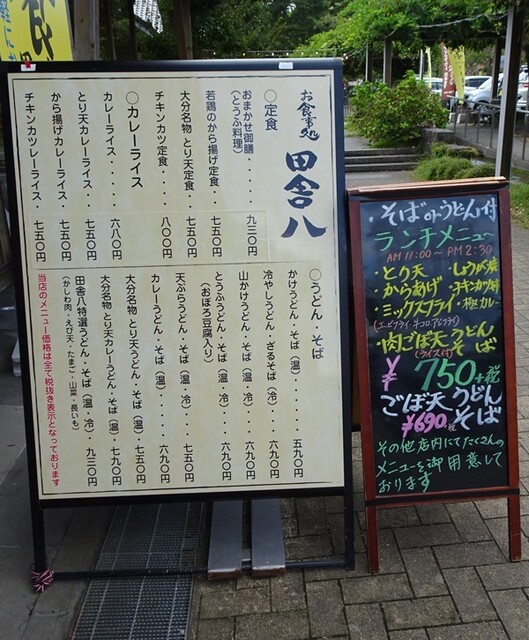 お食事処
田舎八
○定食
おまかせ御膳・・・・九三〇円
（とうふ料理）
若鶏のから揚げ定食・・・七五〇円
大分名物 とり天定食・・・七五〇円
チキンカツ定食・・・・八〇〇円
○カレーライス
カレーライス・・・・・六八〇円
とり天カレーライス・・・七五〇円
から揚げカレーライス・・七五〇円
チキンカツレーライス・・七五〇円
○うどん・そば
かけうどん・そば（温）・・・・五九〇円
冷やしうどん・ざるそば（冷）・・六九〇円
山かけうどん・そば（温・冷）・・六九〇円
とうふうどん・そば（温・冷）・・六九〇円
（おぼろ豆腐入り）
天ぷらうどん・そば（温・冷）・・七五〇円
カレーうどん・そば（温）・・・六九〇円
大分名物 とり天うどん・そば（温）・七五〇円
大分名物 とり天カレーうどん・そば（温）・七九〇円
田舎八特選うどん・そば（温・冷）・九三〇円
（かしわ肉・えび天・たまご・山菜・長いも）
当店のメニュー価格は全て税抜き表示となっております
・そばorうどん付
ランチメニュー
AM 11:00〜PM 2:30
・とり天 ・しょうが焼
・からあげ ・チキンカツ
・ミックスフライ・
（エビフライ・
・肉ごぼ天うどん
（ライス付）そば
¥750+税
ごぼ天うどん
¥690+税 そば
その他店内にてたくさんの
メニューを御用意して
おります